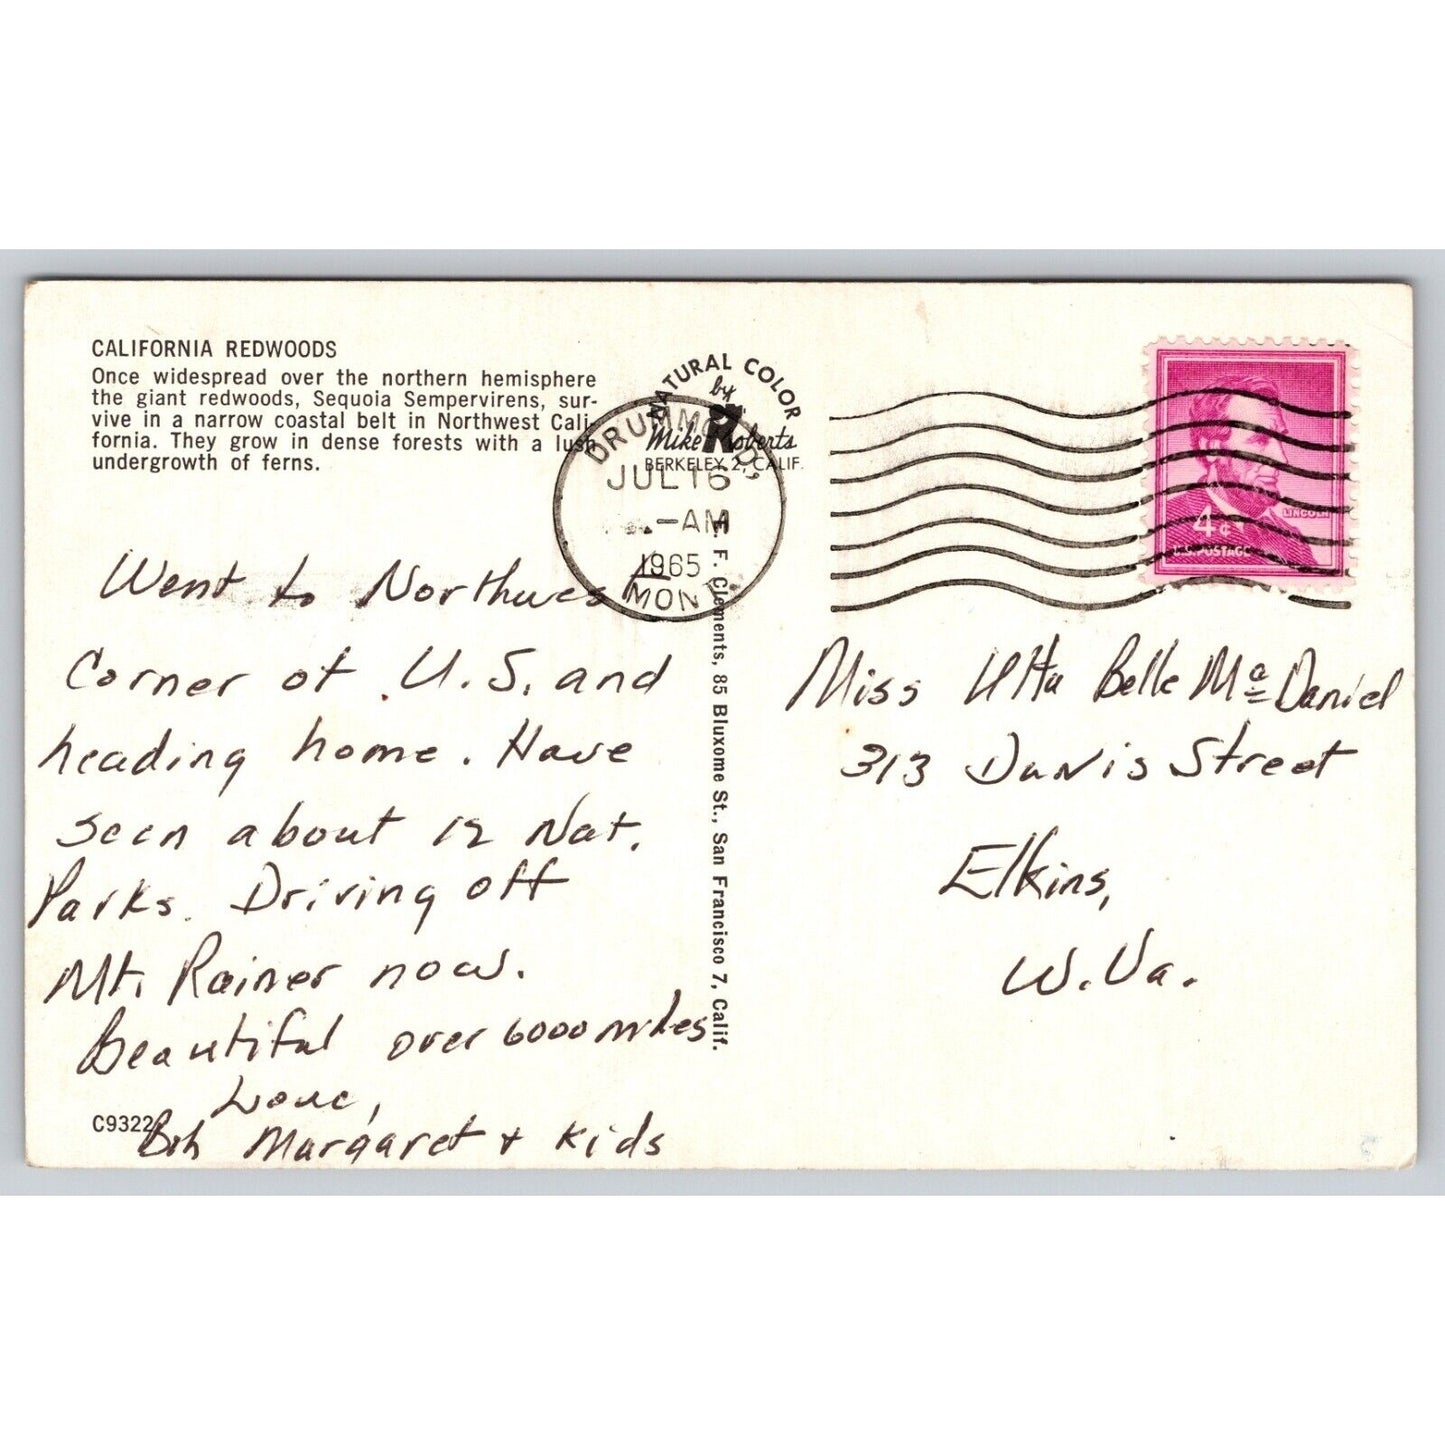 CALIFORNIA REDWOODS
Once widespread over the northern hemisphere
the giant redwoods, Sequoia Sempervirens, sur-
vive in a narrow coastal belt in Northwest Cali-
fornia. They grow in dense forests with a lush
undergrowth of ferns.
NATURAL COLOR
by
Mike Roberts
BERKELEY 2, CALIF.
DRUMMOND,
JUL 16
-AM
1965
MONT.
LINCOLN
4¢
U.S. POSTAGE
F. Clements, 85 Bluxome St., San Francisco 7, Calif.
Went to Northwest
Corner of U.S. and
heading home. Have
seen about 12 Nat.
Parks. Driving off
Mt. Rainer now.
Beautiful over 6000 miles
Love,
Bob Margaret + kids
C9322
Miss Belle McDaniel
313 Davis Street
Elkins,
W. Va.